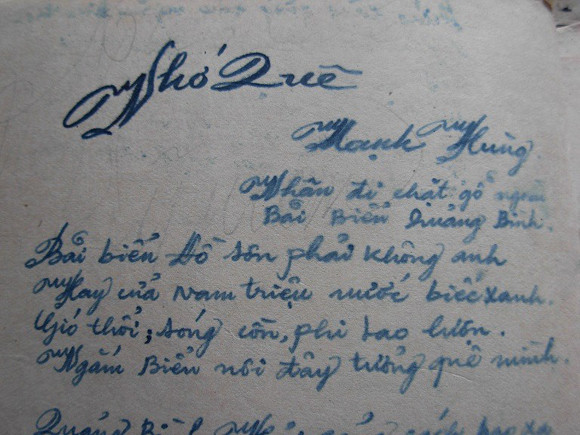 Nhớ Quê
Mạnh Hùng.
Nhân đi chặt gỗ ngoài
Bãi Biển Quảng Bình.
Bãi biển Đồ Sơn phải không anh
Hay cửa Nam triệu nước biếc xanh.
Gió thổi; sóng cồn, phi lao lượn.
Ngắm Biển nơi đây tưởng quê mình.
Quảng Bình